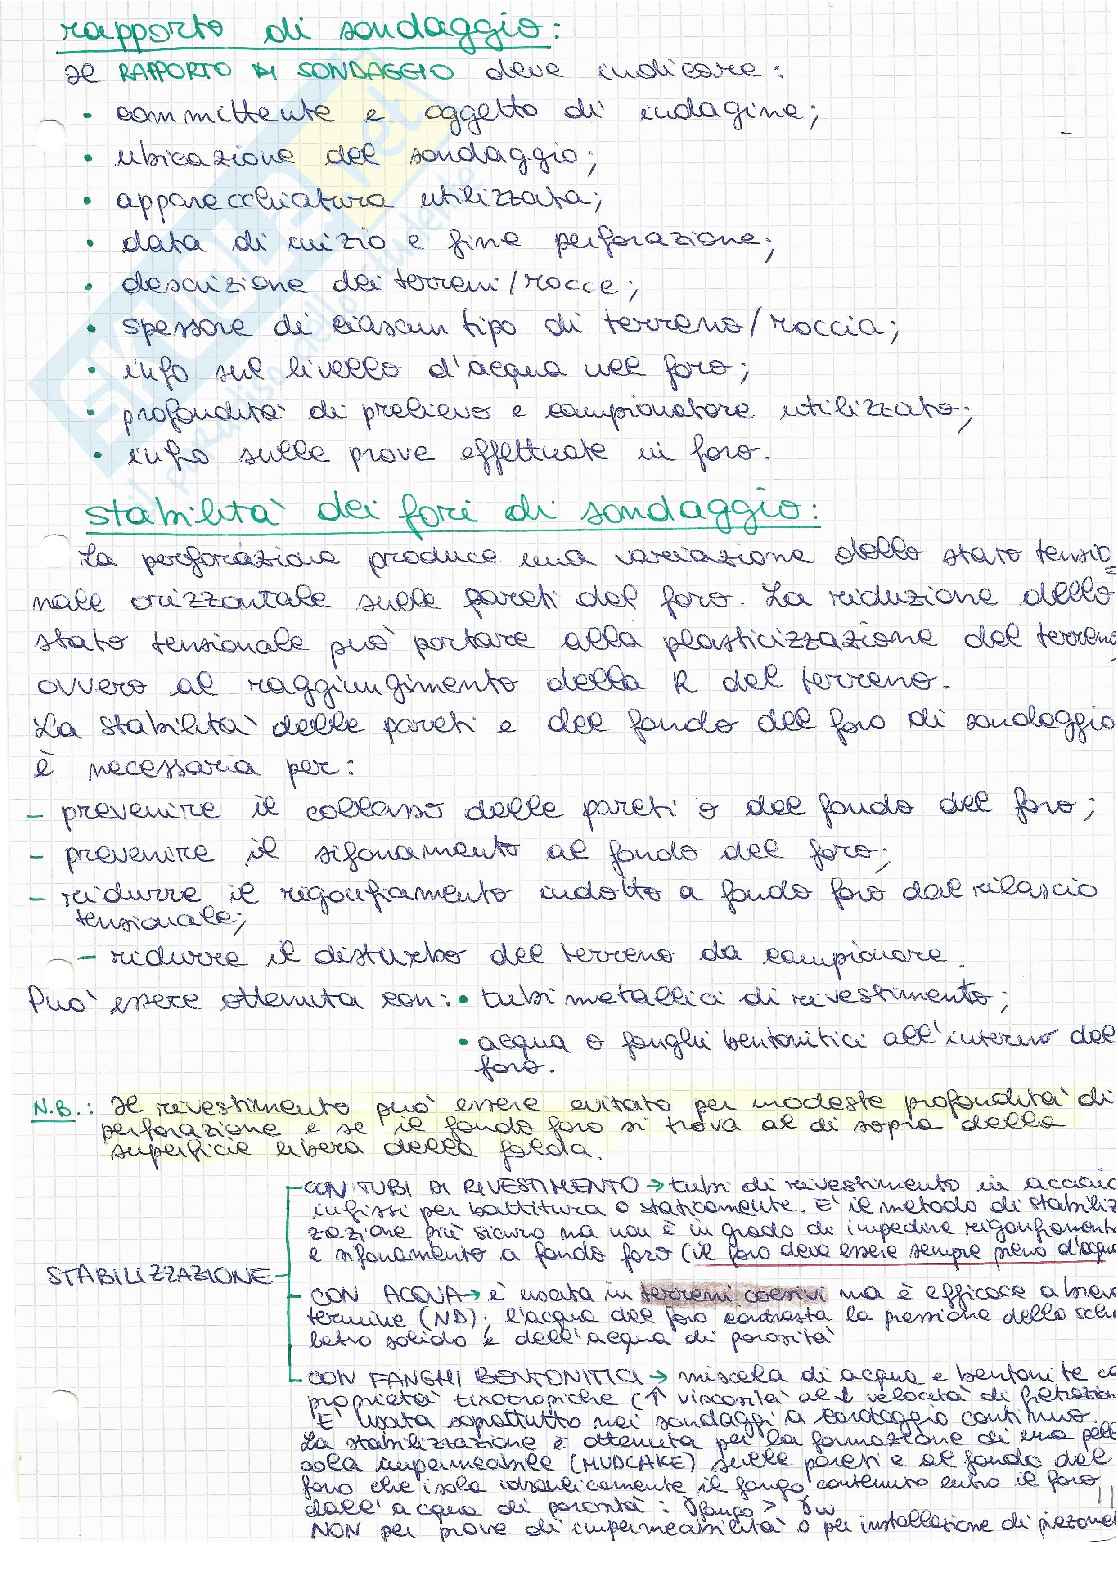 rapporto di sondaggio:
Il RAPPORTO DI SONDAGGIO deve indicare:
• committente e oggetto di indagine;
• ubicazione del sondaggio;
• apparecchiatura utilizzata;
• data di inizio e fine perforazione;
• descrizione dei terreni/rocce;
• spessore di ciascun tipo di terreno/roccia;
• info sul livello d'acqua nel foro;
• profondità di prelievo e campionatore utilizzato;
• info sulle prove effettuate in foro.
stabilità dei fori di sondaggio:
La perforazione produce una variazione dello stato tensio
nale orizzontale sulle pareti del foro. La riduzione dello
stato tensionale può portare alla plasticizzazione del terreno
ovvero al raggiungimento della R del terreno.
La stabilità delle pareti e del fondo del foro di sondaggio
è necessaria per:
- prevenire il collasso delle pareti o del fondo del foro;
- prevenire il sifonamento al fondo del foro;
- ridurre il rigonfiamento indotto a fondo foro dal rilascio
tensionale;
- ridurre il disturbo del terreno da campionare.
Può essere ottenuta con: • tubi metallici di rivestimento;
• acqua o fanghi bentonitici all'interno del
foro.
N.B.: Il rivestimento può essere evitato per modeste profondità di
perforazione e se il fondo foro si trova al di sopra della
superficie libera della falda.
CON TUBI DI RIVESTIMENTO → tubi di rivestimento in acciaio
infissi per battitura o staticamente. E' il metodo di stabiliz
zazione più sicuro ma non è in grado di impedire rigonfiamento
e sifonamento a fondo foro (il foro deve essere sempre pieno d'acqua
STABILIZZAZIONE
CON ACQUA → è usata in terreni coesivi ma è efficace a breve
termine (ND); l'acqua del foro contrasta la pressione dello sche
letro solido e dell'acqua di porosità
CON FANGHI BENTONITICI → miscela di acqua e bentonite co
proprietà tixotropiche (↑ viscosità al ↓ velocità di
E' usata soprattutto nei sondaggi a carotaggio continuo.
La stabilizzazione è ottenuta per la formazione di una pelli
cola impermeabile (MUDCAKE) sulle pareti e al fondo del
foro che isola idraulicamente il fango contenuto entro il foro
dall'acqua di porosità: γfango > γw
NON per prove di impermeabilità o per installazione di piezomet